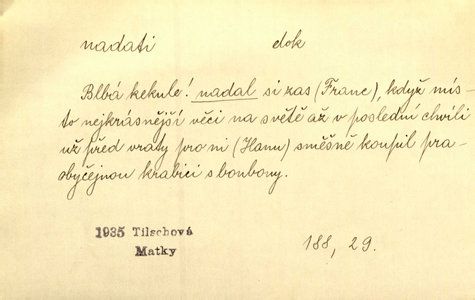 nadati dok
Blbá kekule! nadal si zas (Franc), když mís-
to nejkrásnější věci na světě až v poslední chvíli
už před vraty pro ni (Hanu) směšně koupil pra-
obyčejnou krabici s bonbony.
1935 Tilschová
Matky
188, 29.